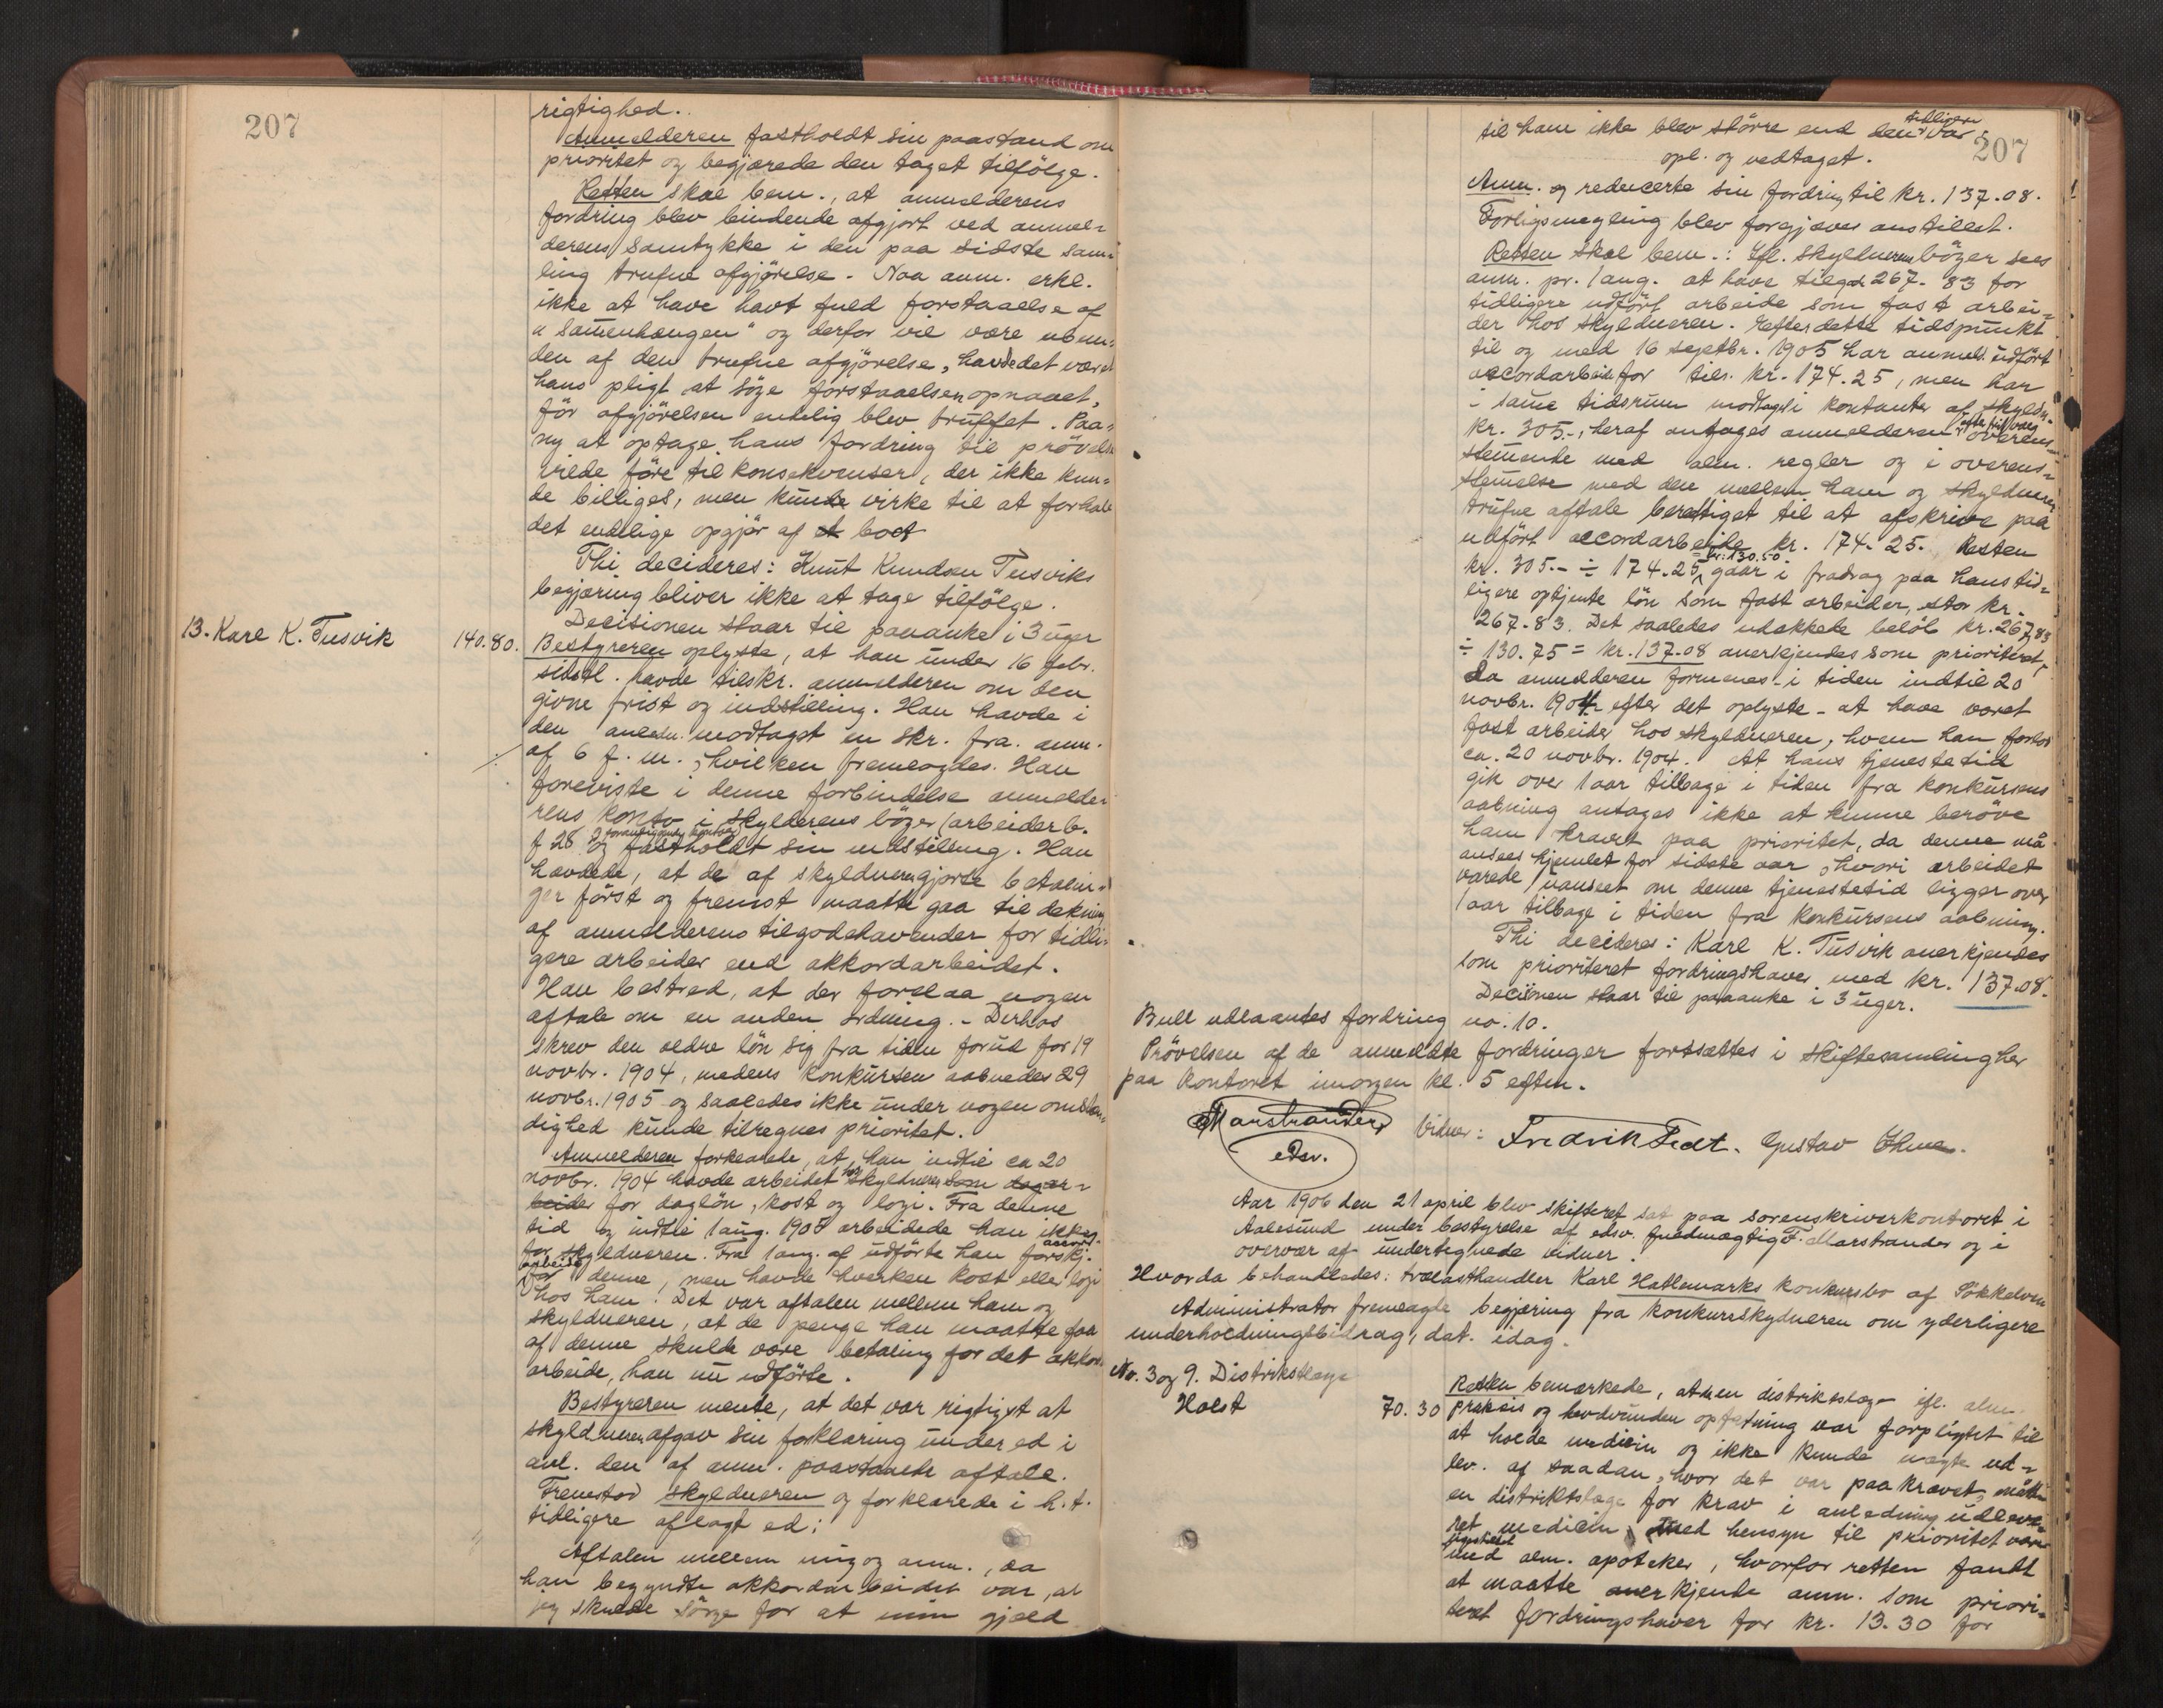 207
rigtighed.
Anmelderen fastholdt sin paastand om
prioritet og begjærede den taget tilfölge.
Retten skal bem., at anmelderens
fordring blev bindende afgjort ved anmel-
derens samtykke i den paa sidste sam-
ling trufne afgjörelse. Naa anm. erkl.
ikke at have havt fuld forstaaelse af
"samenhængen" og derfor vil være ubun-
den af den trufne afgjörelse, havde det været
hans pligt at söge forstaaelsen opnaaet,
för afgjörelsen endelig blev truffet. Paa-
ny at optage hans fordring til prövelse
vilde före til konsekvenser, der ikke kun-
de billiges, men kunde virke til at forhale
det endelige opgjör af boet
Thi decideres: Knut Knudsen Tusviks
begjæring bliver ikke at tage tilfölge.
Decisionen staar til paaanke i 3 uger
13. Karl K. Tusvik 140.80. Bestyreren oplyste, at han under 16 febr.
sidstl. havde tilskr. anmelderen om den
givne frist og indstilling. Han havde i
den anledn. modtaget en skr. fra anm.
af 6 f. m., hvilken fremlagdes. Han
foreviste i denne forbindelse anmelde-
rens konto i skylderens böger (arbeiderb.
f 28 og fastholdt sin indstilling. Han
hævdede, at de af skylderen gjorte betalin-
ger först og fremst maatte gaa til dekning
af anmelderens tilgodehavender for tidli-
gere arbeider end akkordarbeidet.
Han bestred, at der forelaa nogen
aftale om en anden ordning. - Derhos
skrev den ældre lön sig fra tiden forud for 19
novbr. 1904, medens konkursen aabnedes 29
novbr. 1905 og saaledes ikke under nogen omstæn-
dighed kunde tilregnes prioritet.
Anmelderen forklarede, at han indtil ca 20
novbr. 1904 havde arbeidet hos skyldneren som dagar-
beider for daglön, kost og logi. Fra denne
tid og indtil 1 aug. 1905 arbeidede han ikke
for skyldneren. Fra 1 aug. af udförte han forskj. accord-
arbeide for denne, men havde hverken kost eller logi
hos ham! Det var aftalen mellem ham og
skyldneren, at de penge han maatte faa
af denne skulde være betaling for det akkord-
arbeide, han nu udförte.
Bestyreren mente, at det var rigtigst at
skyldneren afgav sin forklaring under ed i
anl. den af anm. paastaaede aftale.
Fremstod skyldneren og forklarede i h. t.
tidligere aflagt ed:
Aftalen mellem mig og anm., da
han begyndte akkordarbeidet var, at
jeg skulde sörge for at min gjæld
207
til ham ikke blev större end den tidligere var
opl. og vedtaget.
Anm. og reducerte sin fordring til kr. 137.08.
Forligsmegling blev forgjæves anstillet.
Retten skal bem.: Ifl. skyldnerens böger sees
anm. pr. 1 aug. at have tilgode 267.83 for
tidligere udfört arbeide som fast arbei-
der hos skyldneren. Efter dette tidspunkt
til og med 16 septbr. 1905 har anmeld. udfört
accordarbeide for tils. kr. 174.25, men har
i same tidsrum modtaget i kontanter af skyldn.
kr. 305.-, heraf antages anmelderen overens-
stemmende med alm. regler og i overens-
stemmelse med den mellem ham og skyldneren
trufne aftale berettiget til at afskrive paa
udfört accordarbeide kr. 174.25. Resten
kr. 305.- ÷ 174.25 = kr. 130.50 gaar i fradrag paa hans tid-
ligere optjente lön som fast arbeider, stor kr.
267.83. Det saaledes udækkede belöb kr. 267,83
÷ 130.75 = kr. 137.08 anerkjendes som prioriteret,
da anmelderen formenes i tiden indtil 20
novbr. 1904 efter det oplyste - at have været
fast arbeider hos skyldneren, hvem han forlod
ca. 20 novbr. 1904. At hans tjenestetid
gik over 1 aar tilbage i tiden fra konkursens
aabning antages ikke at kunne beröve
ham kravet paa prioritet, da denne må
ansees hjemlet for sidste aar, hvori arbeidet
varede, uanseet om denne tjenestetid ligger over
1 aar tilbage i tiden fra konkursens aabning.
Thi decideres: Karl K. Tusvik anerkjendes
som prioriteret fordringshaver med kr. 137.08.
Decisionen staar til paaanke i 3 uger.
Bull udlaantes fordring no. 10.
Prövelsen af de anmeldte fordringer fortsættes i skiftesamling her
paa kontoret imorgen kl. 5 eftm.
Marstrander Vidner: Fredrik Fedt. Gustav
edsv.
Aar 1906 den 21 april blev skifteret sat paa sorenskriverkontoret i
Aalesund under bestyrelse af edsv. fuldmægtig F. Marstrander og i
overvær af undertegnede vidner.
Hvorda behandledes: trælasthandler Karl Hatlemarks konkursbo af Sökkelven
Administrator fremlagde begjæring fra konkursskyldneren om yderligere
underholdningsbidrag, dat. idag.
No. 3 og 9. Distriktslæge
Holst 70.30 Retten bemærkede, at den distriktslæge ifl. alm.
praksis og hævdvunden opfatning var forpligtet til
at holde medicin og ikke kunde nægte ud-
lev. af saadan, hvor det var paakrævet, måtte
en distriktslæge for krav i anledning udleve-
ret medicin med hensyn til prioritet være
ligestillet med alm. apoteker, hvorfor retten fandt
at maatte anerkjende anm. som priori-
teret fordringshaver for kr. 13.30 for